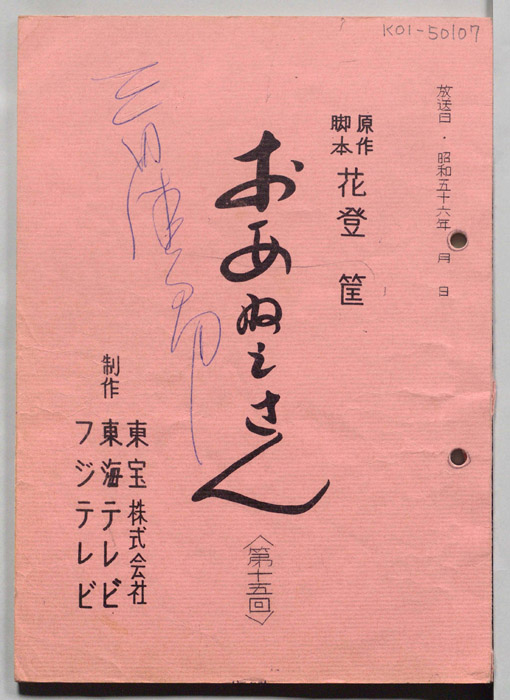 KO1-50107
放送日・昭和五十六年 月 日
原作
脚本
花登筐
おあねえさん
〈第十五回〉
制作
東宝株式会社
東海テレビ
フジテレビ